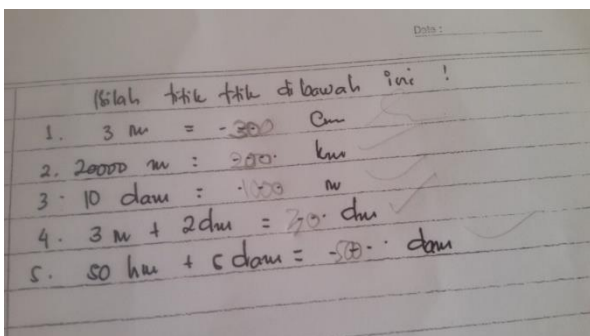 Date :
Isilah titik titik dibawah ini !
1. 3 m = 300 cm
2. 20000 m = 200 km
3. 10 dam = 1000 m
4. 3 m + 2 dm = dm
5. 50 hm + 5 dam = dam